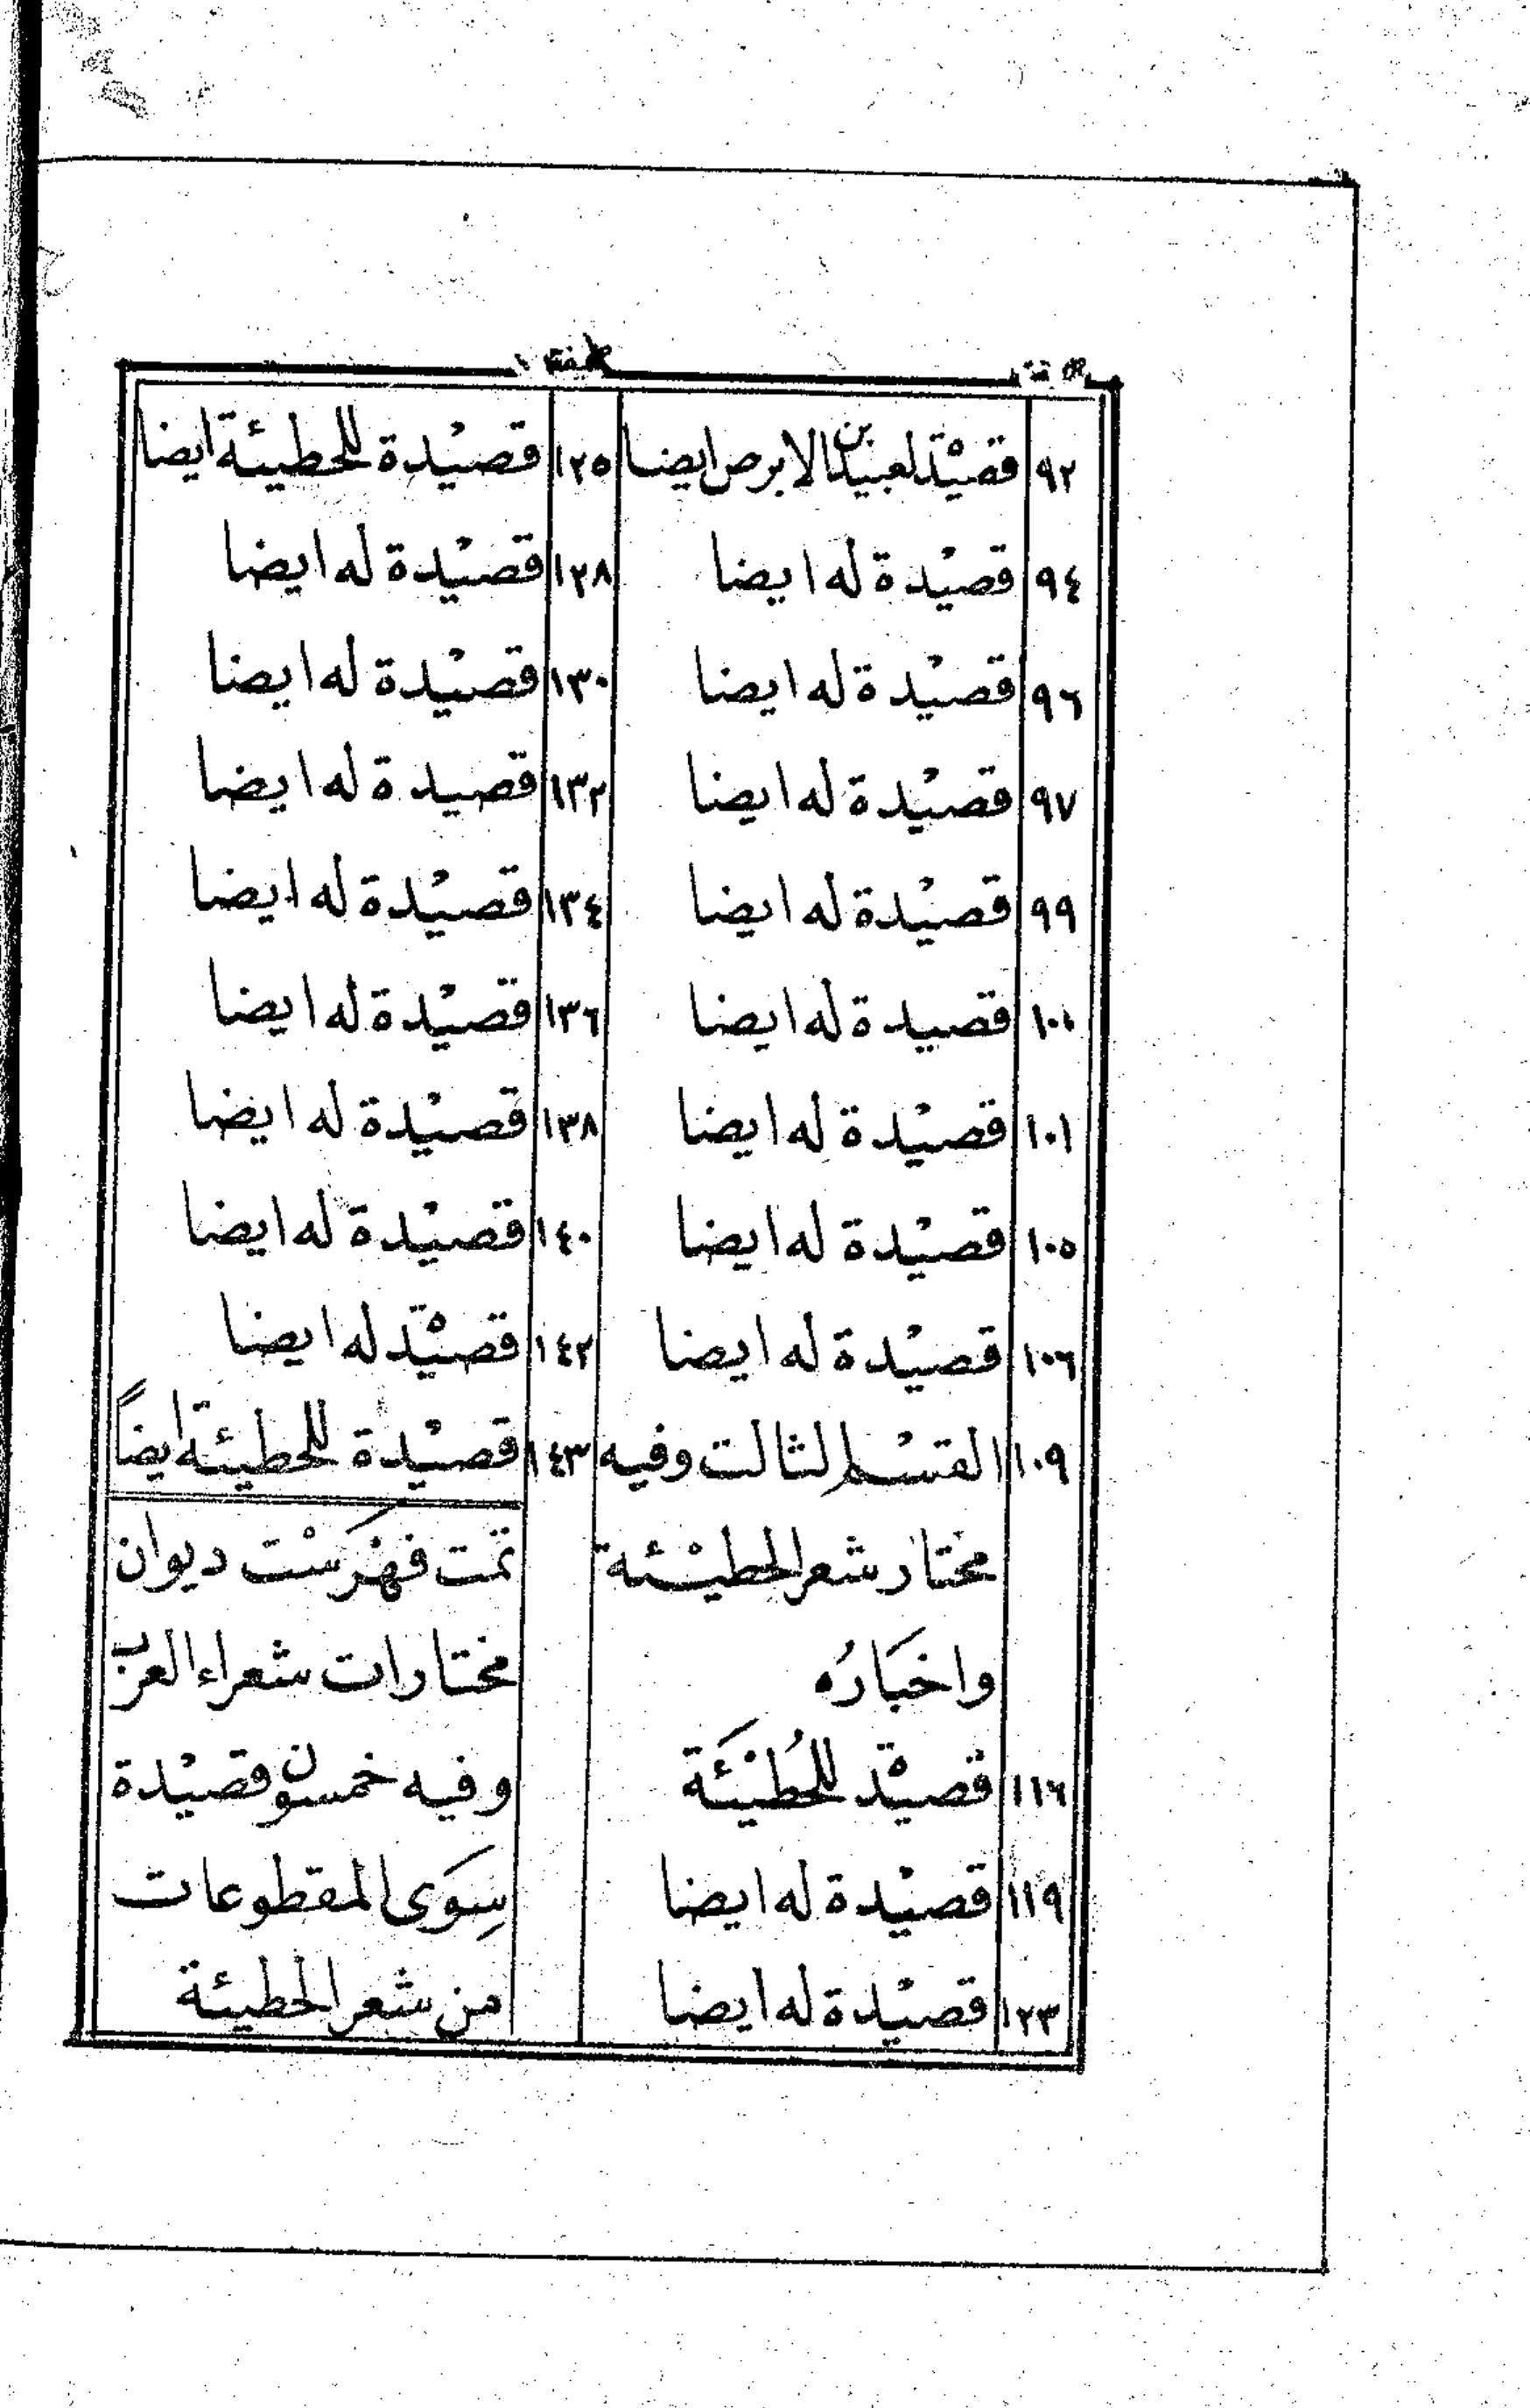 صحيفة
٩٢ قصيدة لعبيد بن الابرص ايضا
٩٤ قصيْدة له ايضا
٩٦ قصيْدة له ايضا
٩٧ قصيْدة له ايضا
٩٩ قصيْدة له ايضا
١٠٠ قصيدة له ايضا
١٠١ قصيْدة له ايضا
١٠٥ قصيْدة له ايضا
١٠٦ قصيْدة له ايضا
١٠٩ القسْم الثالث وفيه
مختار شعر الحطيْئة
واخبَارُه
١١٦ قصيْدة للحُطَيْئَة
١١٩ قصيْدة له ايضا
١٢٣ قصيْدة له ايضا
صحيفة
١٢٥ قصيْدة للحطيئة ايضا
١٢٨ قصيْدة له ايضا
١٣٠ قصيْدة له ايضا
١٣٢ قصيدة له ايضا
١٣٤ قصيْدة له ايضا
١٣٦ قصيْدة له ايضا
١٣٨ قصيْدة له ايضا
١٤٠ قصيْدة له ايضا
١٤٢ قصيْدة له ايضا
١٤٣ قصيْدة للحطيئة ايضاً
تمّت فهْرَسْت ديوان
مختارات شعراء العرب
وفيه خمسون قصيْدة
سِوَى المقطوعات
من شعر الحطيئة